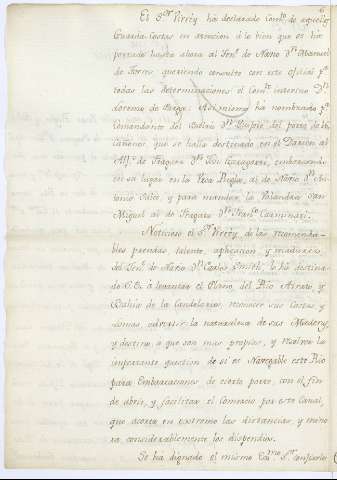 El S.or Virrey há declarado Com.te de aquellos
Guarda Costas en atencion á lo bien que se há
portado hasta ahora al Ten.te de Navio D.n Manuel
de Torres, queriendo consulte con este oficial p.a
todas las determinaciones el Com.te interino D.n
de Vega: Asimismo há nombrado p.a
Comandante del del porte de 16
cañones, que se halla destinado en el Darien al
Alf.z de Fragata D.n embarcando
en su lugar en la al de Navio D.n An-
tonio y para mandar la Balandra San
Miguel al de Fragata D.n Fran.co Caamindri.
Noticioso el S.or Virrey, de las recomenda-
bles prendas, talento, aplicacion, y madurez
del Ten.te de Navio D.n Carlos Smith, le há destina-
do S.E. á levantar el Plano, del Rio Atrato, y
Bahia de la Candelaria, reconocer sus Costas, y
demas, advertir la naturaleza de sus Maderas,
y destino, á que son mas propias, y resolver la
importante question de si es Navegable este Rio
para Embarcaciones de cierto porte, con el fin
de abrir, y facilitar el Comercio por este Canal,
que acorta en extremo las distancias, y mino-
ra considerablemente los dispendios.
Se há dignado el mismo Ex.mo S.or